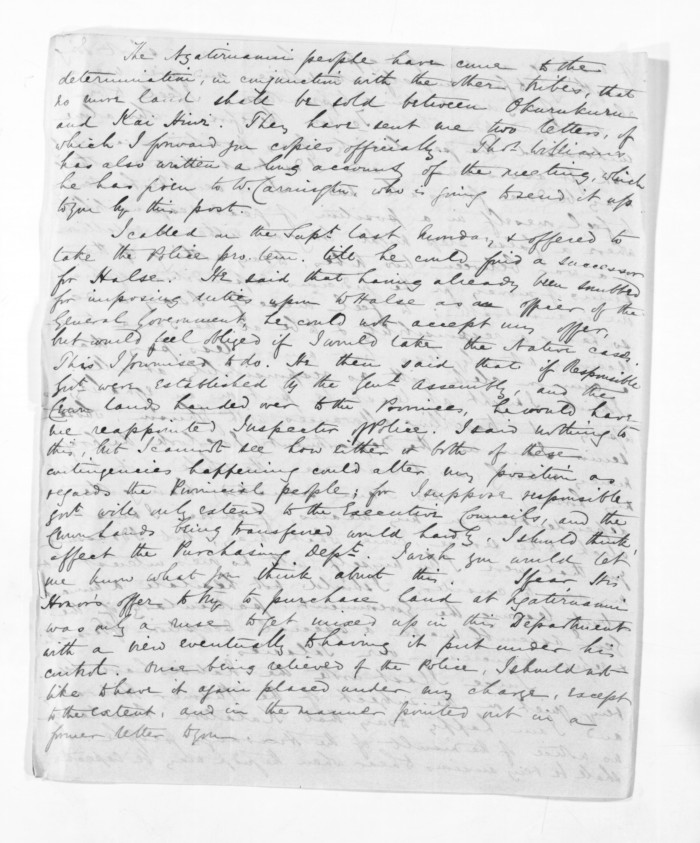 The Ngatiruanui people have come to the
determination, in conjunction with the other tribes, that
no more land shall be sold between Okurukuru
and Kai Hiwi. They have sent me two letters, of
which I forward you copies officially. Thos. Williams
has also written a long account of the meeting, which
he has given to W. Carrington who is going to send it up
to you by this post.
I called on the Supt. last Monday, & offered to
take the Police pro. tem. till he could find a successor
for Halse. He said that having already been snubbed
for imposing duties upon W Halse as an officer of the
General Government, he could not accept my offer,
but would feel obliged if I would take the Native cases.
This I promised to do. He then said that if Responsible
Govt. were established by the Genl. Assembly and the
Crown lands handed over to the Provinces, he would have
me reappointed Inspector of Police. I said nothing to
this, but I cannot see how either or both of these
contingencies happening could alter my position as
regards the Provincial people; for I suppose responsible
govt. will only extend to the Executive Councils, and the
Crown lands being transferred would hardly, I should think,
affect the Purchasing Dept. I wish you would let
me know what you think about this. I fear His
Honor's offer to try to purchase land at Ngatiruanui
was only a ruse to get mixed up in this Department
with a view eventually to having it put under his
control. Once being relieved of the Police, I should not
like to have it again placed under my charge, except
to the extent, and in the manner pointed out in a
former letter to you.